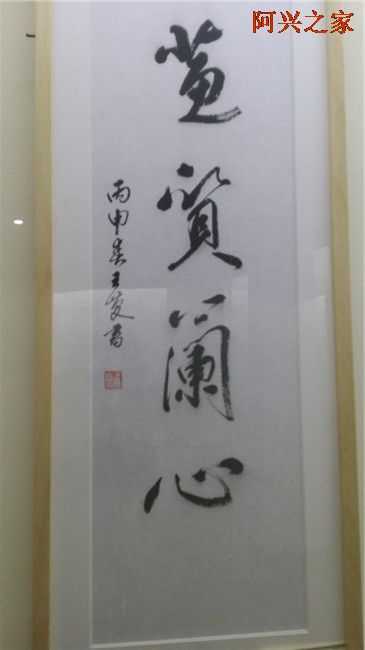 阿兴之家
蕙質蘭心
丙申春王書